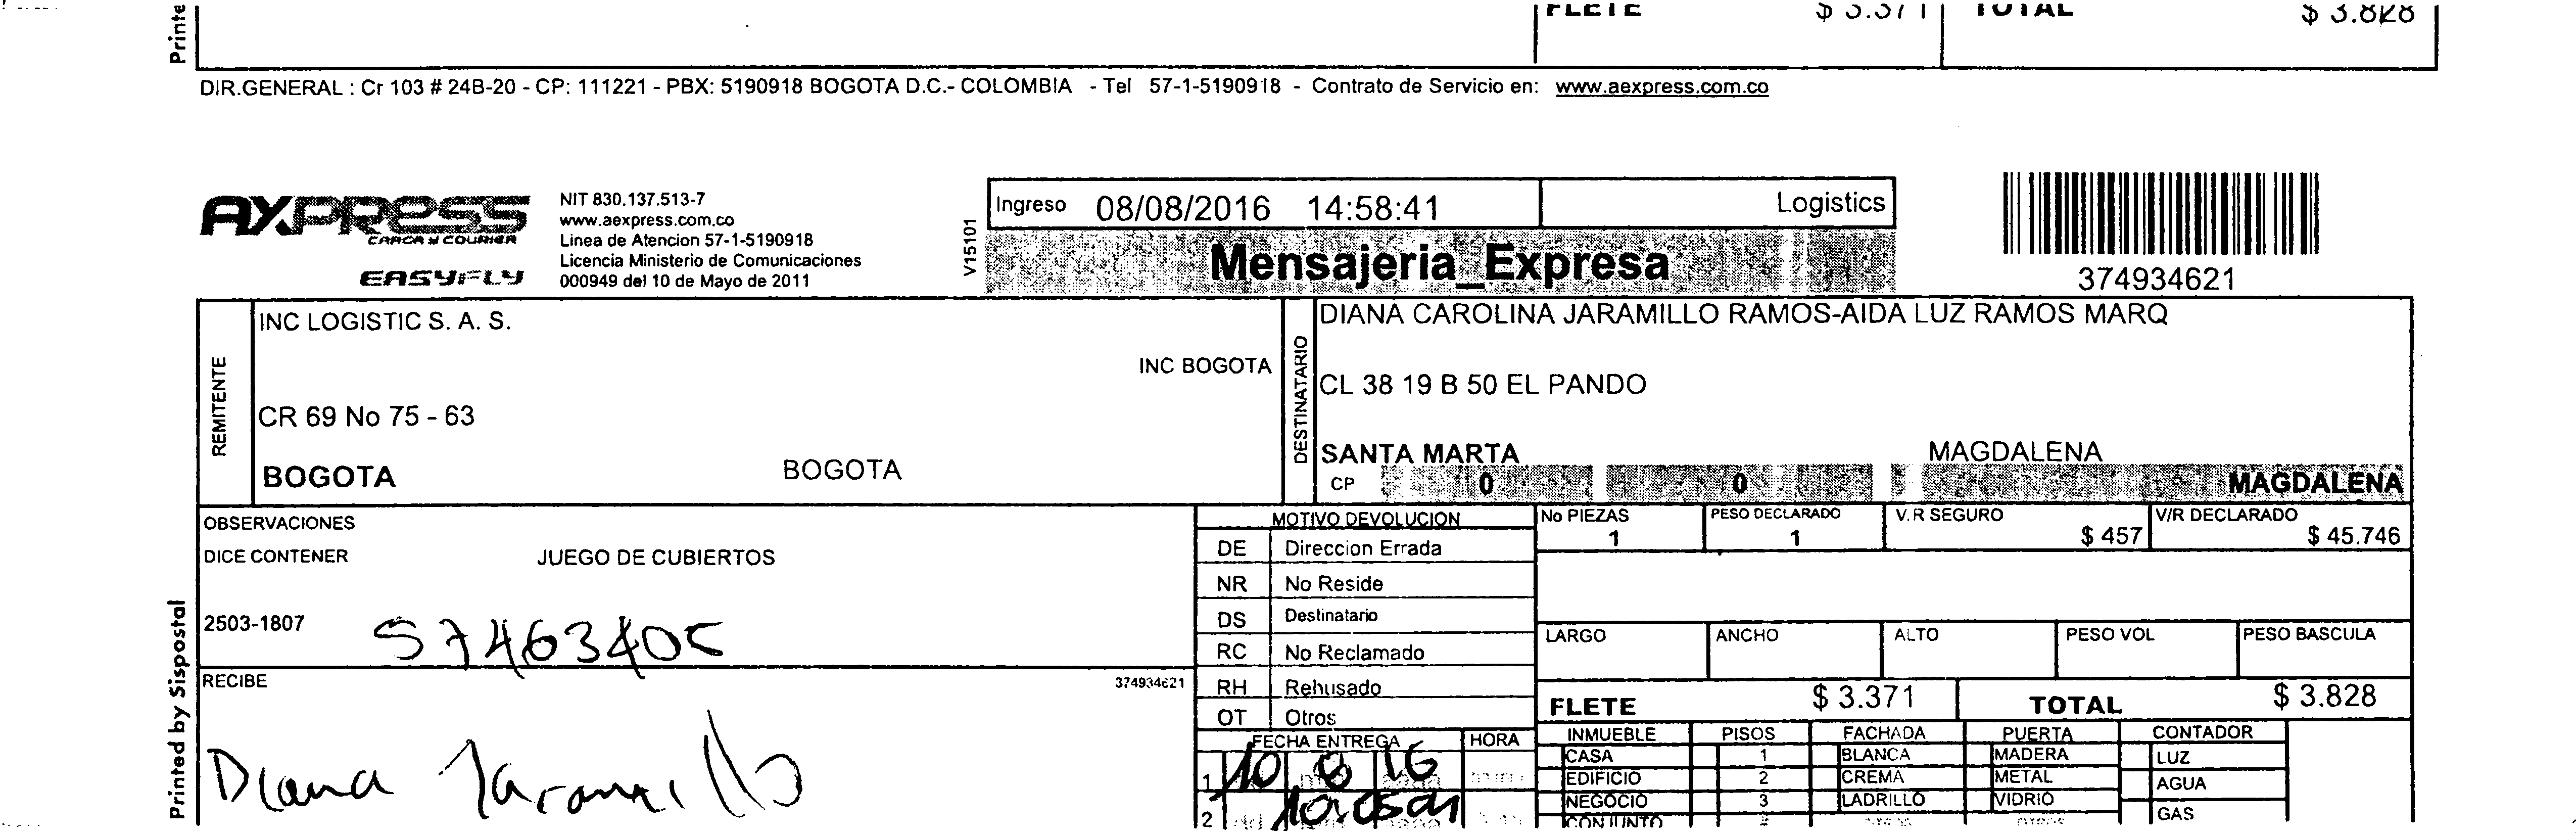 Printe
FLETE $ 3.371 TOTAL $ 3.828
DIR.GENERAL : Cr 103 # 24B-20 - CP: 111221 - PBX: 5190918 BOGOTA D.C.- COLOMBIA - Tel 57-1-5190918 - Contrato de Servicio en: www.aexpress.com.co
AXPRESS
CARGA Y COURIER
EASYFLY
NIT 830.137.513-7
www.aexpress.com.co
Linea de Atencion 57-1-5190918
Licencia Ministerio de Comunicaciones
000949 del 10 de Mayo de 2011
V15101
Ingreso 08/08/2016 14:58:41 Logistics
Mensajeria_Expresa
374934621
REMITENTE
INC LOGISTIC S. A. S.
INC BOGOTA
CR 69 No 75 - 63
BOGOTA BOGOTA
DESTINATARIO
DIANA CAROLINA JARAMILLO RAMOS-AIDA LUZ RAMOS MARQ
CL 38 19 B 50 EL PANDO
SANTA MARTA MAGDALENA
CP 0 0 MAGDALENA
OBSERVACIONES
DICE CONTENER JUEGO DE CUBIERTOS
2503-1807
RECIBE 374934621
Diana Jaramillo
Printed by Sispostal
MOTIVO DEVOLUCION
DE Direccion Errada
NR No Reside
DS Destinatario
RC No Reclamado
RH Rehusado
OT Otros
FECHA ENTREGA HORA
1 10 8 16
2
No PIEZAS PESO DECLARADO V.R SEGURO V/R DECLARADO
1 1 $ 457 $ 45.746
LARGO ANCHO ALTO PESO VOL PESO BASCULA
FLETE $ 3.371 TOTAL $ 3.828
INMUEBLE PISOS FACHADA PUERTA CONTADOR
CASA 1 BLANCA MADERA LUZ
EDIFICIO 2 CREMA METAL AGUA
NEGOCIO 3 LADRILLO VIDRIO GAS
CONJUNTO